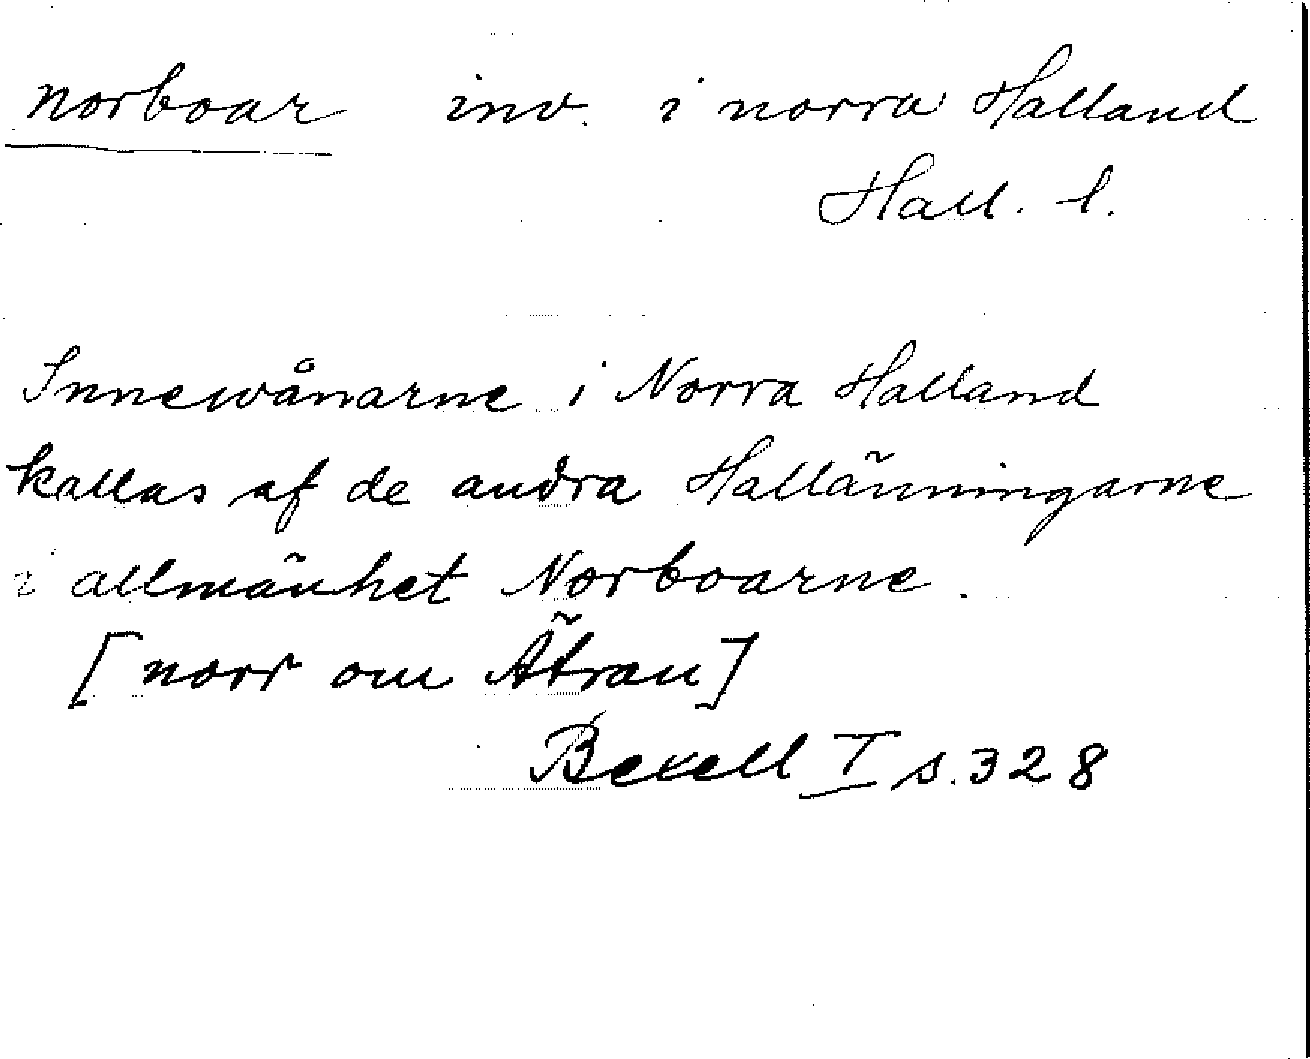 norboar inv. i norra Halland
Hall. l.
Innewånarne i Norra Halland
kallas af de andra Hallänningarne
i allmänhet Norboarne.
[norr om Ätran]
Bexell I s. 328